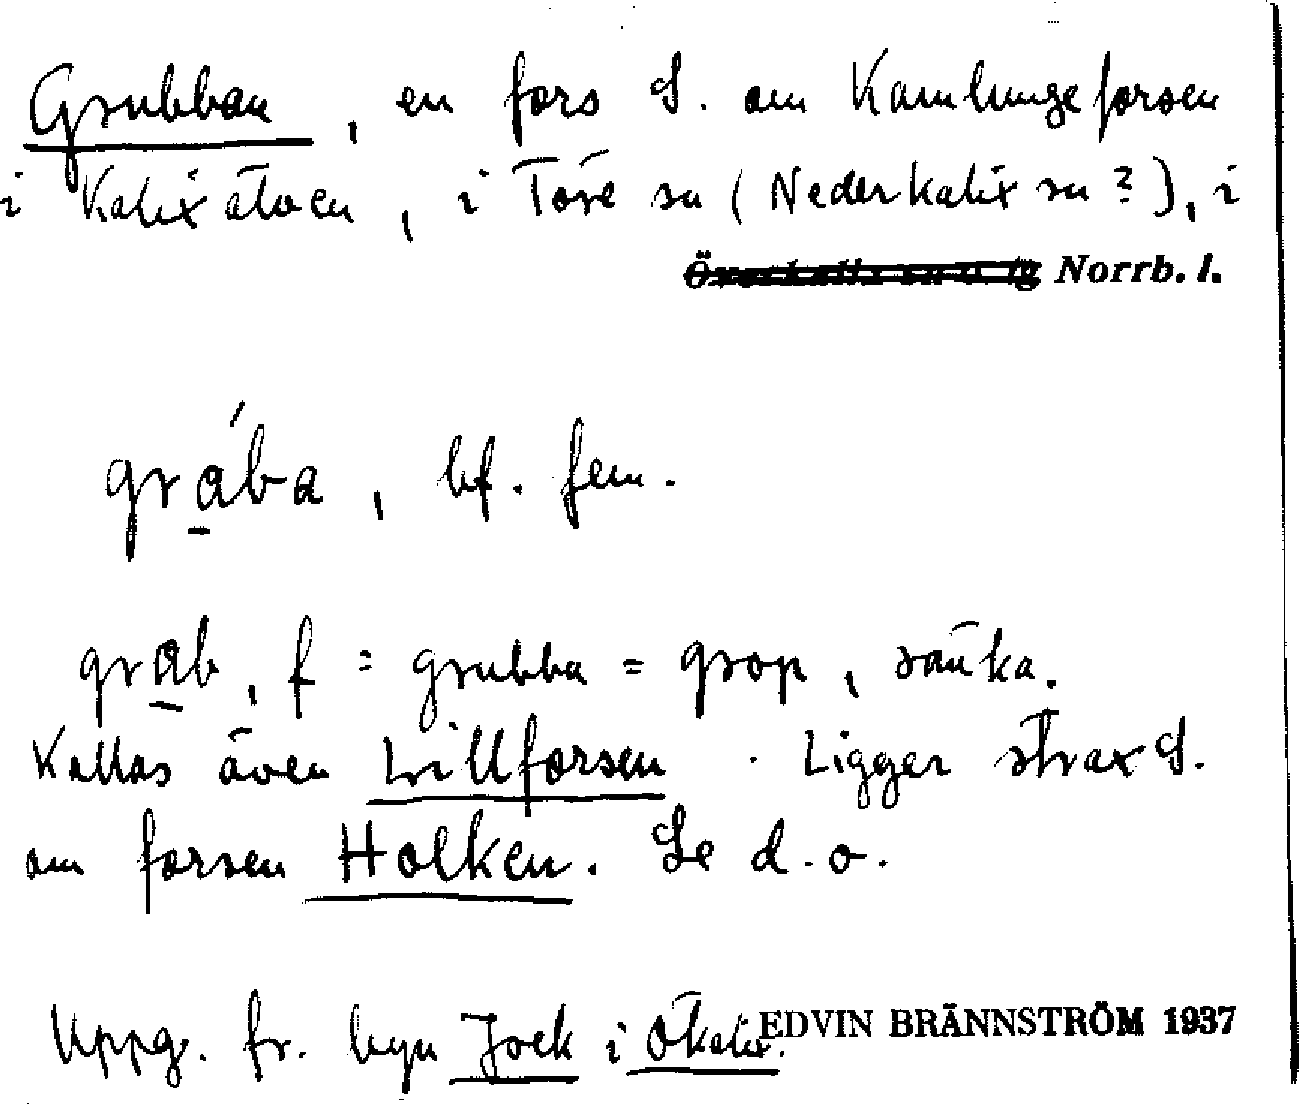 Grubban, en fors S. om Kamlungeforsen
i Kalixälven, i Töre sn (Nederkalix sn?), i
Överkalix sn o. tg Norrb. l.
gråba, bf. fem.
gråb, f = grubba = grop, sänka.
Kallas även Lillforsen. Ligger strax S.
om forsen Holken. Se d.o.
Uppg. fr. byn Jock i Ökalix. EDVIN BRÄNNSTRÖM 1937